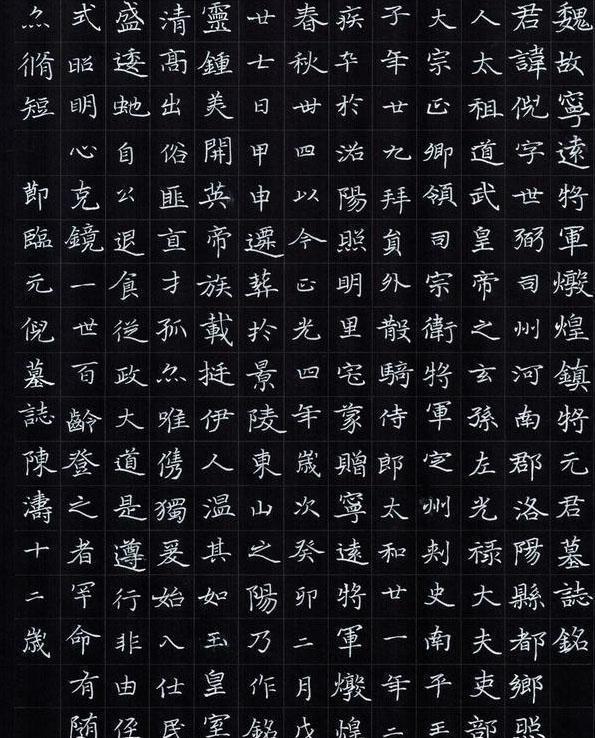 魏故寧遠將軍燉煌鎮將元君墓誌銘
君諱倪字世弼司州河南郡洛陽縣都鄉照
人太祖道武皇帝之玄孫左光祿大夫吏部
大宗正卿領司宗衛將軍定州刺史南平王
子年廿九拜員外散騎侍郎太和廿一年二
疾卒於洛陽照明里宅蒙贈寧遠將軍燉煌
春秋卌四以今正光四年歲次癸卯二月戊
廿七日甲申遷葬於景陵東山之陽乃作銘
靈鍾美開英帝族載挺伊人溫其如玉皇室
清高出俗匪直才孤亦唯儁獨爰始入仕民
盛逶虵自公退食從政大道是遵行非由徑
式昭明心克鏡一世百齡登之者罕命有随
亦脩短 節臨元倪墓誌陳濤十二歲